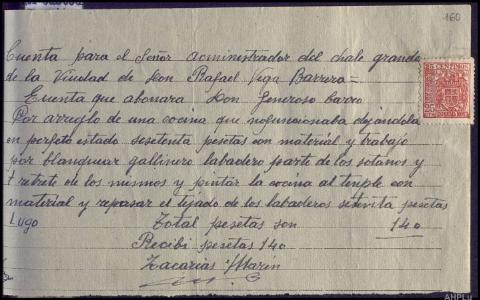 160
Cuenta para el Señor administrador del chale grande
de la Viudad de Don Rafael Vega Barrera=
Cuenta que abonara Don Generoso Barro
Por arreglo de una cocina que nofuncionaba dejandola
en perfeto estado sesetenta pesetas con material y trabajo
por blanquear gallinero labadero parte de los sotanos y
1 retrete de los mismos y pintar la cocina al temple con
material y repasar el tejado de los labaderos setenta pesetas
Lugo Total pesetas son 140
Recibi pesetas 140
Zacarias Marin
AHPLu